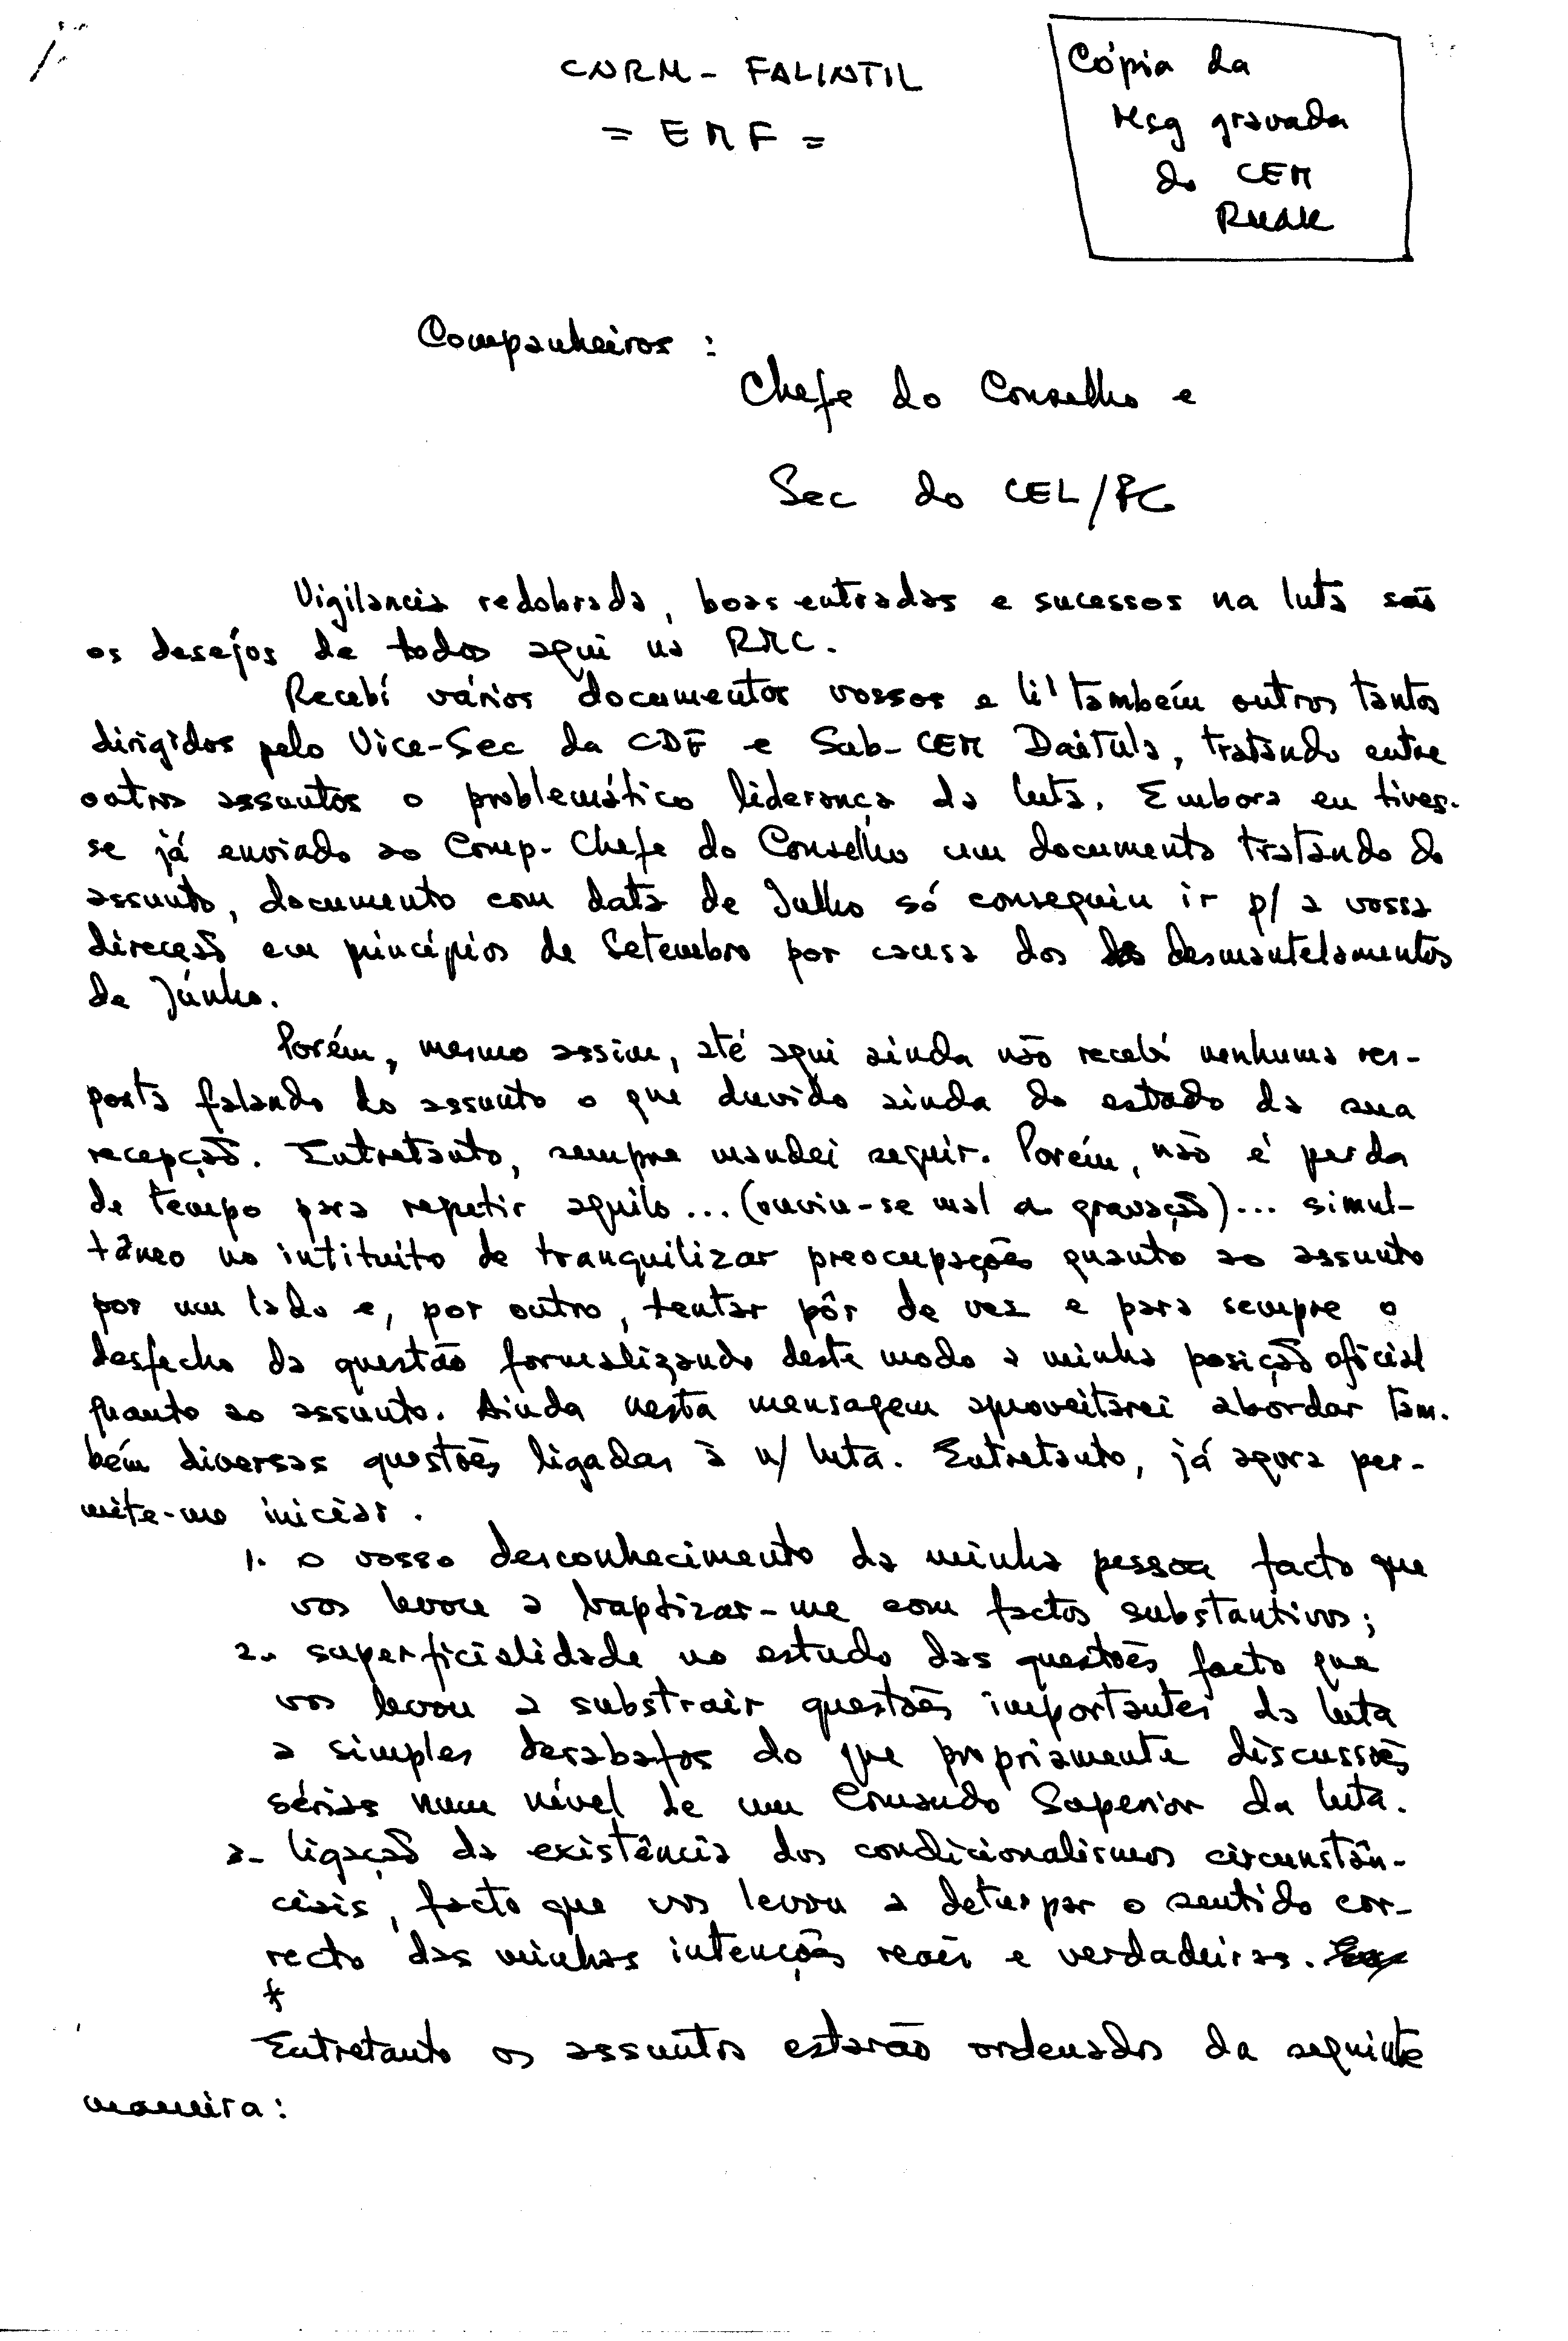 CNRM - FALINTIL
= EMF =
Cópia da
Msg gravada
do CEM
Ruak
Companheiros :
Chefe do Conselho e
Sec do CEL/FC
Vigilancia redobrada, boas entradas e sucessos na luta são
os desejos de todos aqui na RMC.
Recebí vários documentos vossos e li' também outros tantos
dirigidos pelo Vice-Sec da CDF e Sub-CEM Daitula, tratando entre
outros assuntos o problemático liderança da luta. Embora eu tives-
se já enviado ao Comp- Chefe do Conselho um documento tratando do
assunto, documento com data de Julho só conseguiu ir p/ a vossa
direcção em princípios de Setembro por causa dos desmantelamentos
de Junho.
Porém, mesmo assim, até aqui ainda não recebi nenhuma res-
posta falando do assunto o que duvido ainda do estado da sua
recepção. Entretanto, sempre mandei seguir. Porém, não é perda
de tempo para repetir aquilo... (ouviu-se mal a gravação)... simul-
tâneo no intituíto de tranquilizar preocupações quanto ao assunto
por um lado e, por outro, tentar pôr de vez e para sempre o
desfecho da questão formalizando deste modo a minha posição oficial
quanto ao assunto. Ainda nesta mensagem aproveitarei abordar tam-
bém diversas questões ligadas à n/ luta. Entretanto, já agora per-
mite-me iniciar.
1. o vosso desconhecimento da minha pessoa facto que
vos levou a baptizar-me com factos substantivos;
2. superficialidade no estudo das questões facto que
vos levou a substrair questões importantes da luta
a simples desabafos do que propriamente discussões
sérias num nível de um Comando Superior da luta.
3- ligação da existência dos condicionalismos circunstân-
ciais, facto que vos levou a deturpar o sentido cor-
recto das minhas intenções reais e verdadeiras.
*
Entretanto os assuntos estarão ordenados da seguinte
maneira: